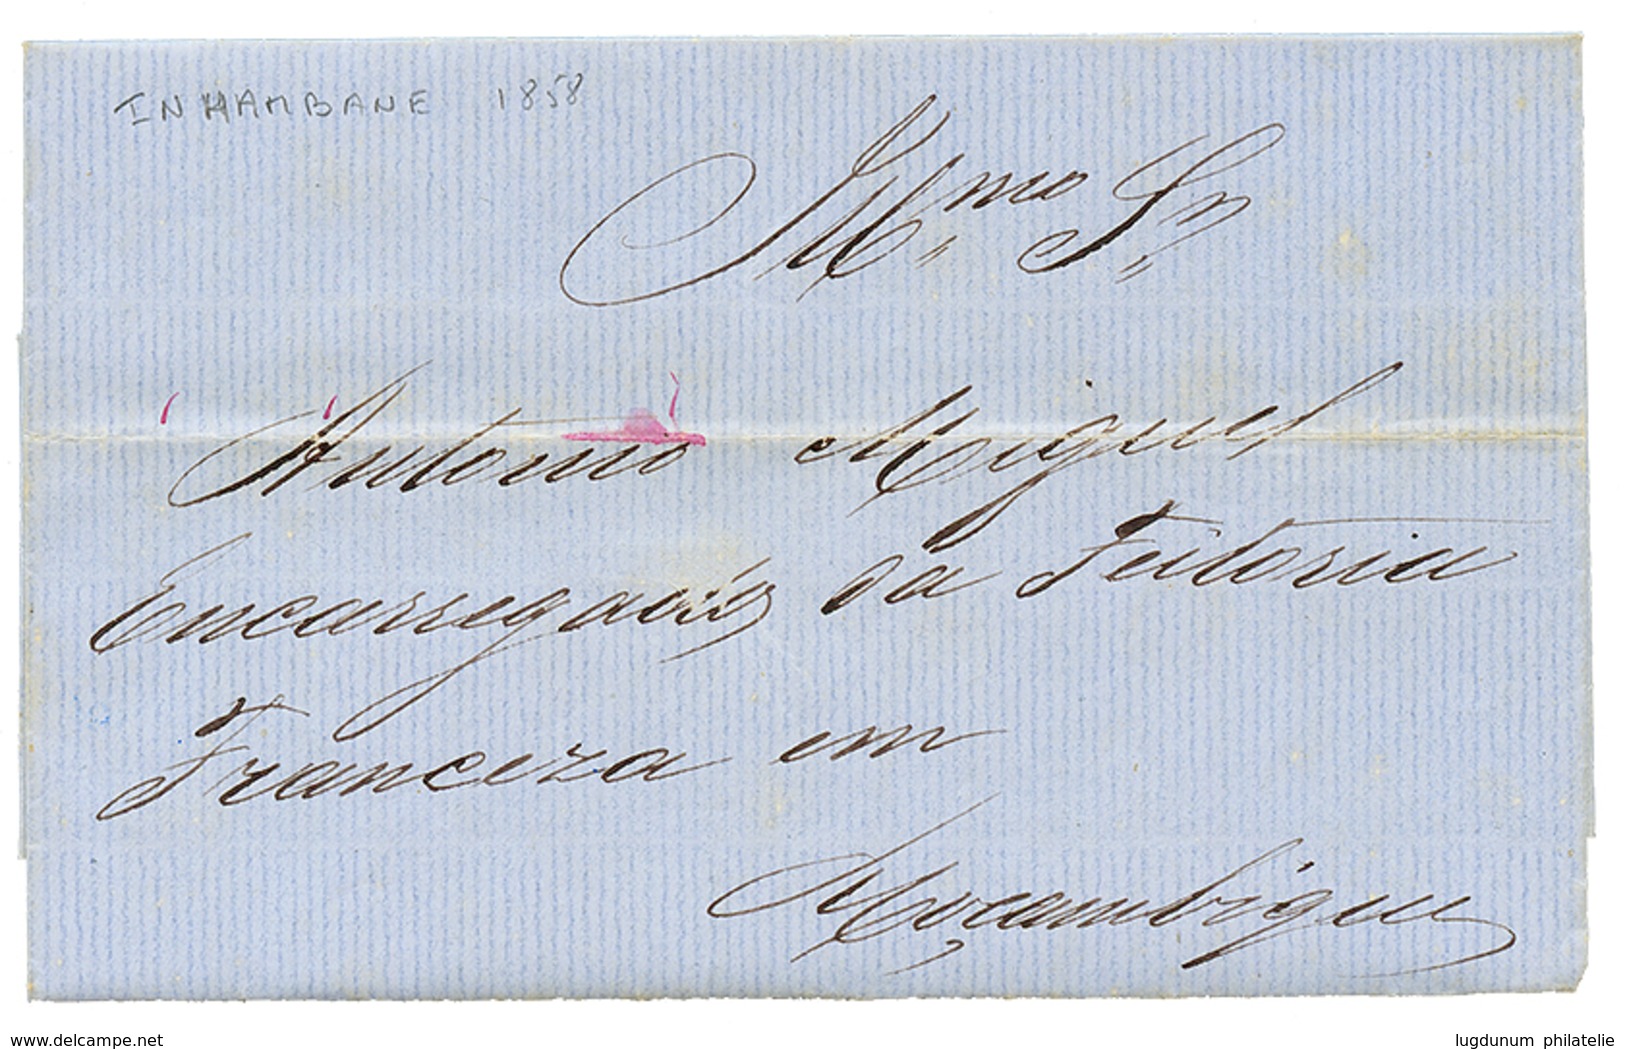 INHAMBANE 1858
Illmo Sr
Antonio Miguel
Encarregado da Feitoria
Franceza em
Moçambique
www.delcampe.net
lugdunum philatelie